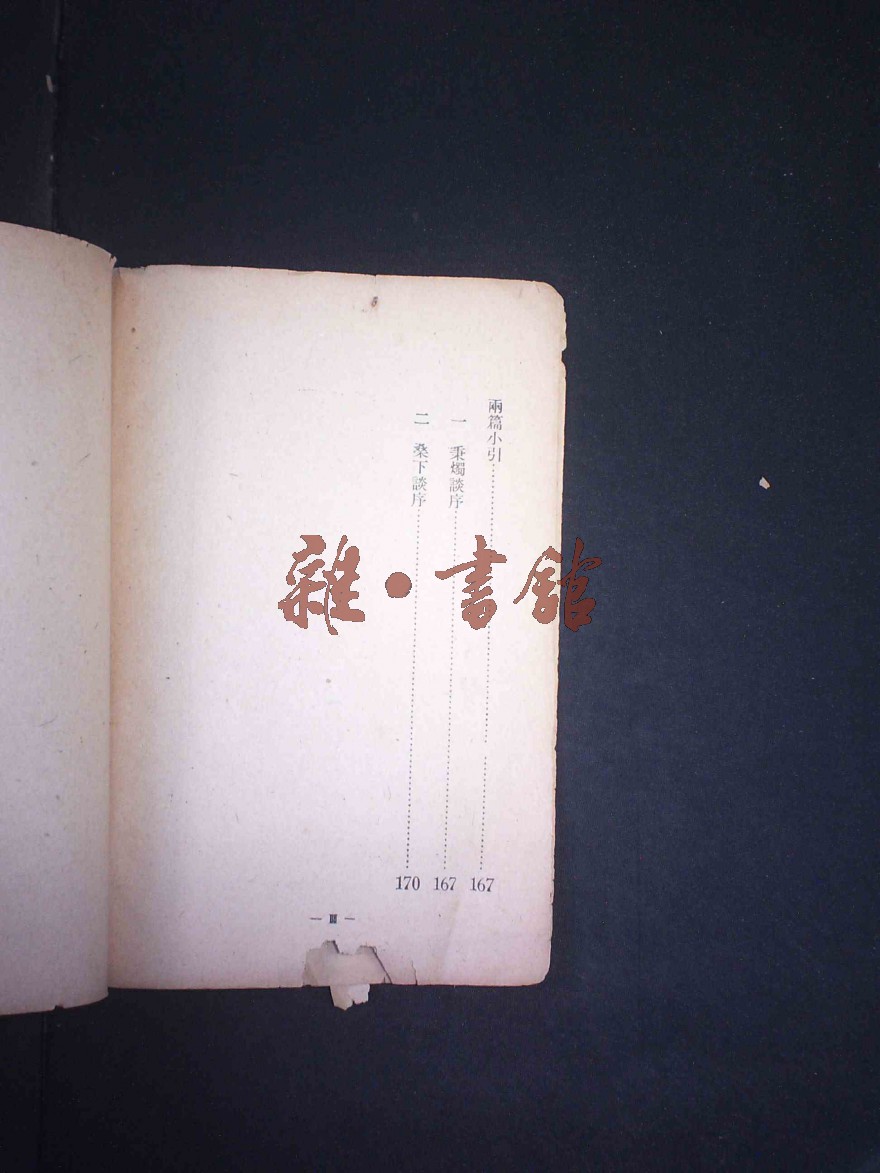 兩篇小引……167
一 秉燭談序……167
二 桑下談序……170
— III —
雜·書館